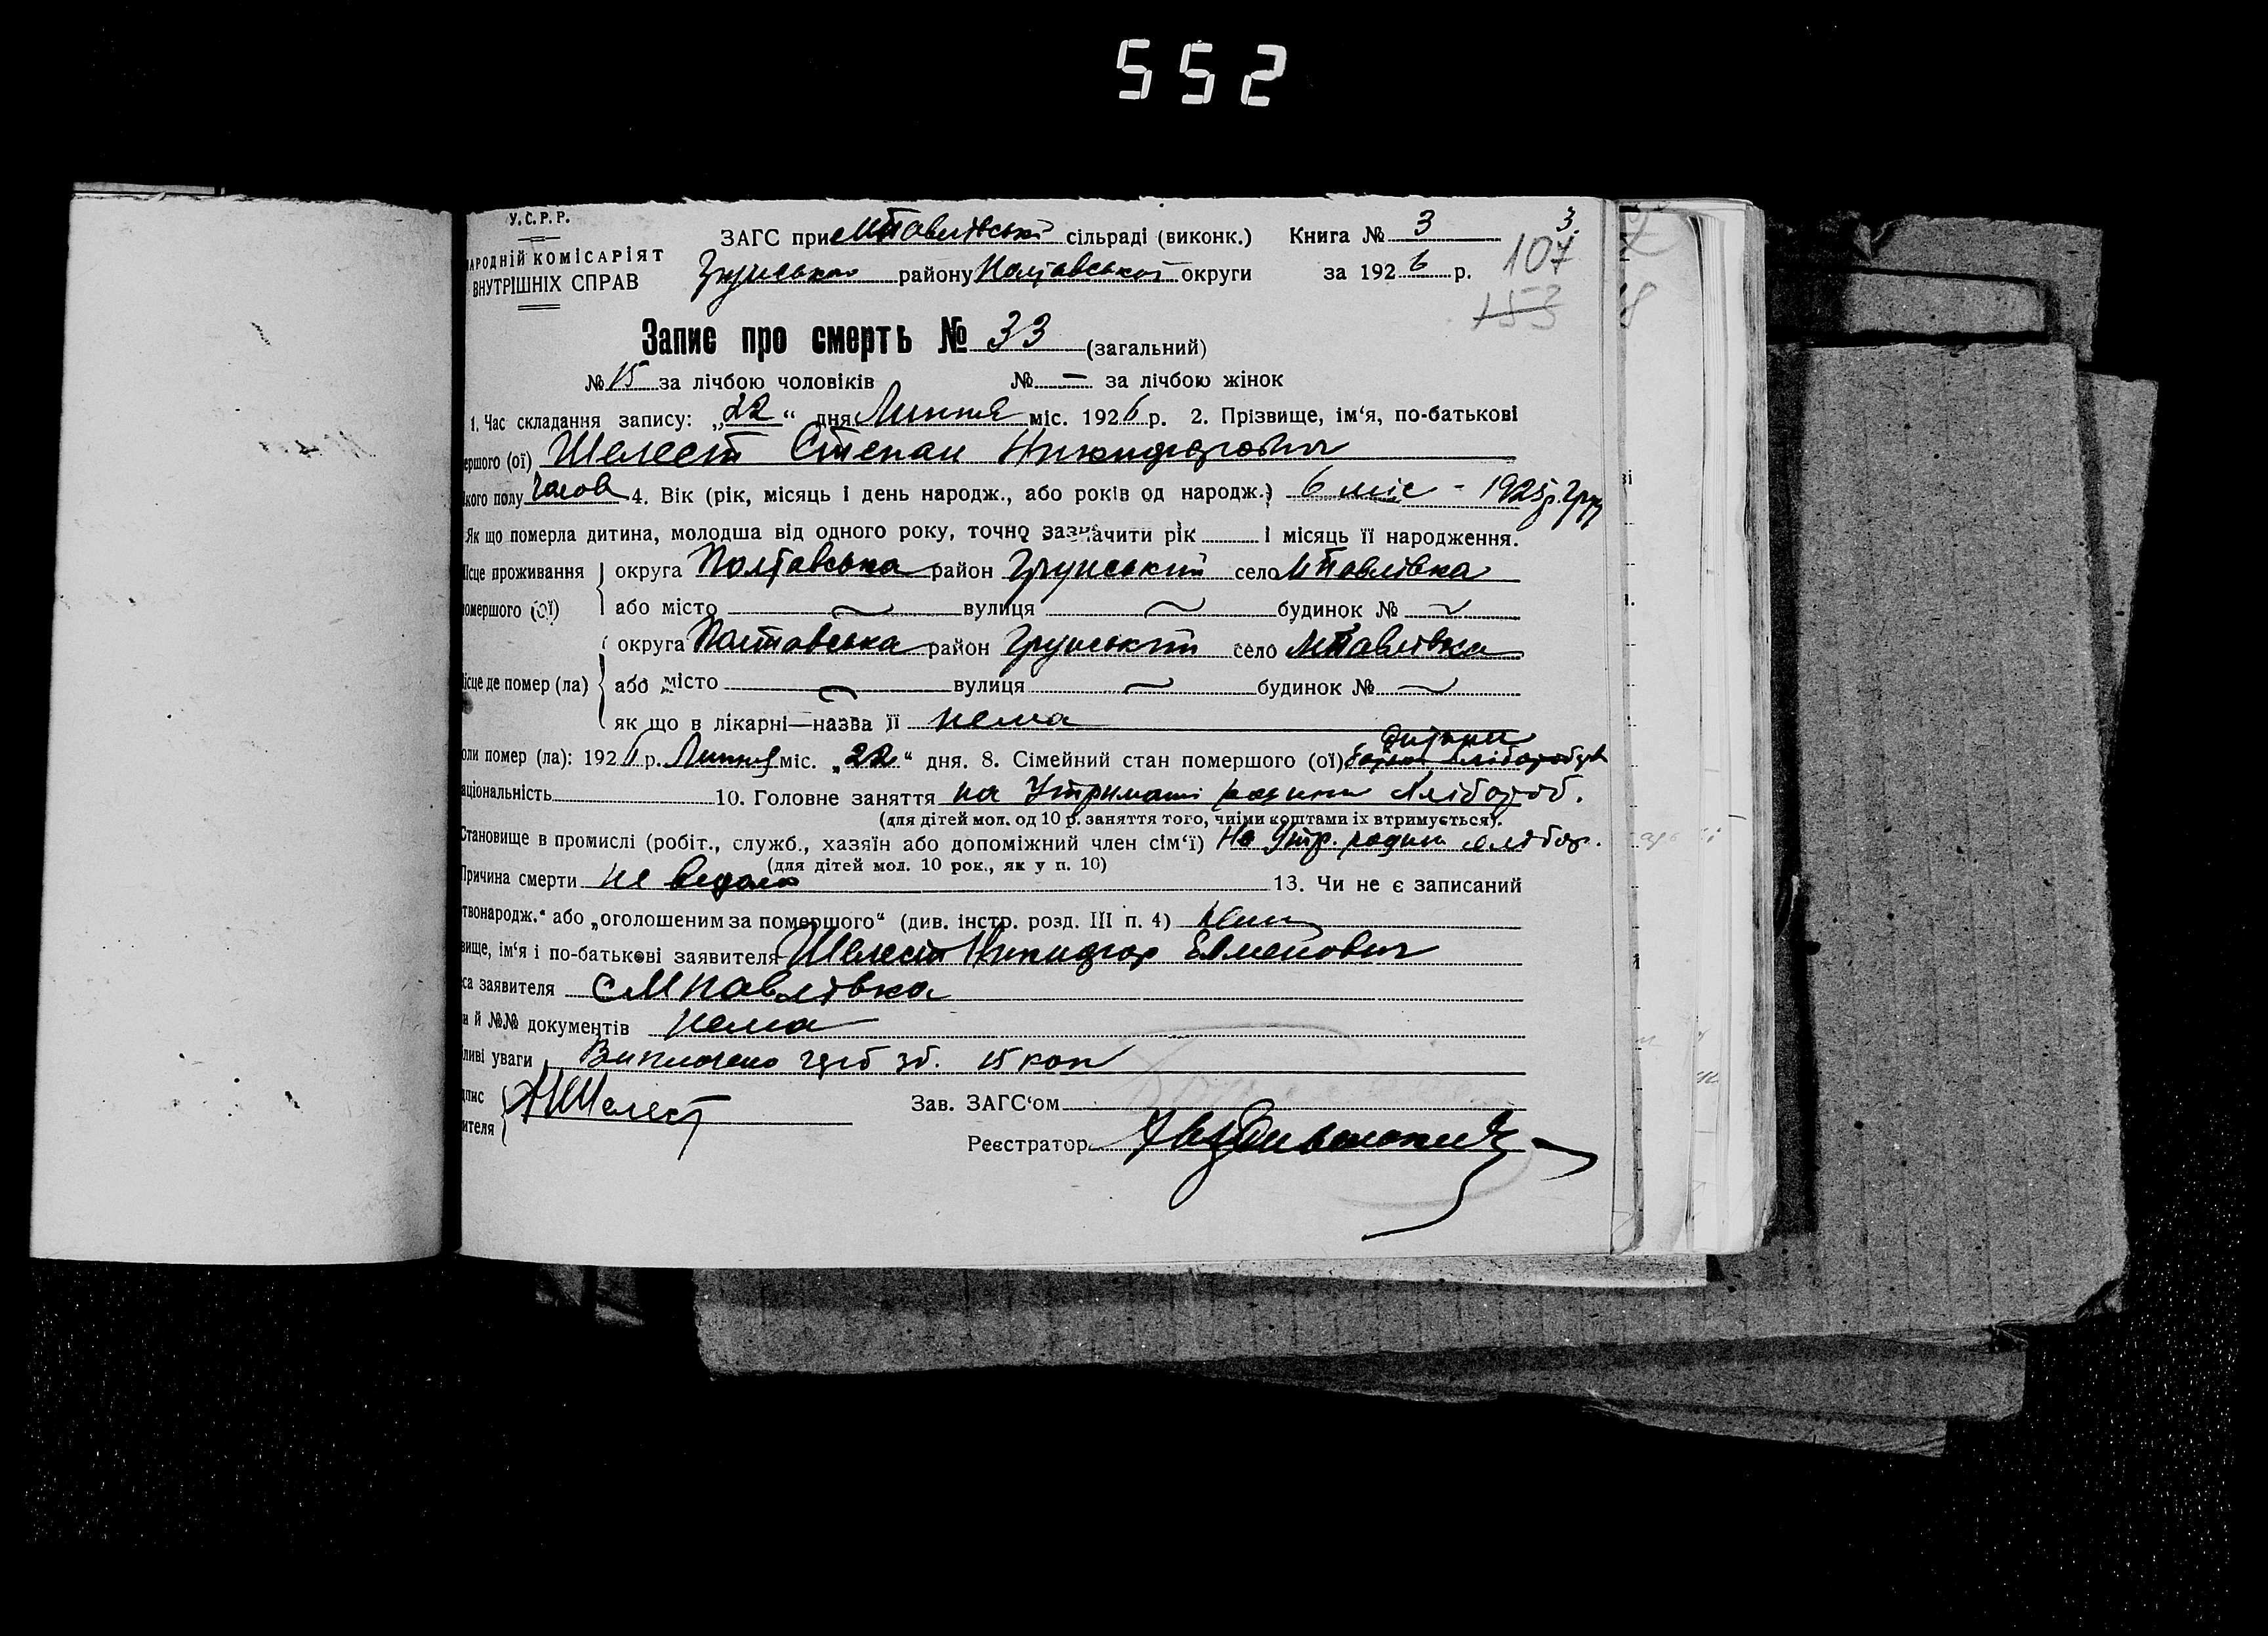 552
У.С.Р.Р.
АРОДНІЙ КОМІСАРІЯТ
ВНУТРІШНІХ СПРАВ
ЗАГС при МПавлівські сільраді (виконк.) Книга № 3 3.
району Полтавської округи за 1926 р. 107
153
Запис про смерть № 33 (загальний)
№ 15 за лічбою чоловіків № — за лічбою жінок
1. Час складання запису: „22“ дня Липня міс. 1926 р. 2. Прізвище, ім‘я, по-батькові
ершого (ої) Шелест Степан Никифорович
кого полу чолов 4. Вік (рік, місяць і день народж., або років од народж.) 6 міс - 1925р. Гру
Як що померла дитина, молодша від одного року, точно зазначити рік і місяць її народження.
ісце проживання округа Полтавська район Грунський село МПавлівка
омершого (ої) або місто вулиця будинок №
округа Полтавська район Грунський село МПавлівка
ісце де помер (ла) або місто вулиця будинок №
як що в лікарні—назва її нема
дитина
оли помер (ла): 1926 р. Липня міс. „22“ дня. 8. Сімейний стан помершого (ої)
аціональність 10. Головне заняття на Утримані родини хлібороб.
(для дітей мол. од 10 р. заняття того, чиїми коштами їх втримується).
Становище в промислі (робіт., служб., хазяїн або допоміжний член сім‘ї) На Утр. родини хлібор.
(для дітей мол. 10 рок., як у п. 10)
Причина смерти не ведомо 13. Чи не є записаний
твонародж.“ або „оголошеним за помершого“ (див. інстр. розд. III п. 4)
вище, ім‘я і по-батькові заявителя Шелест Никифор
са заявителя с МПавлівка
и й №№ документів нема
ливі уваги Виплочено 15 коп
дпис Шелест Зав. ЗАГС‘ом
ителя
Реєстратор